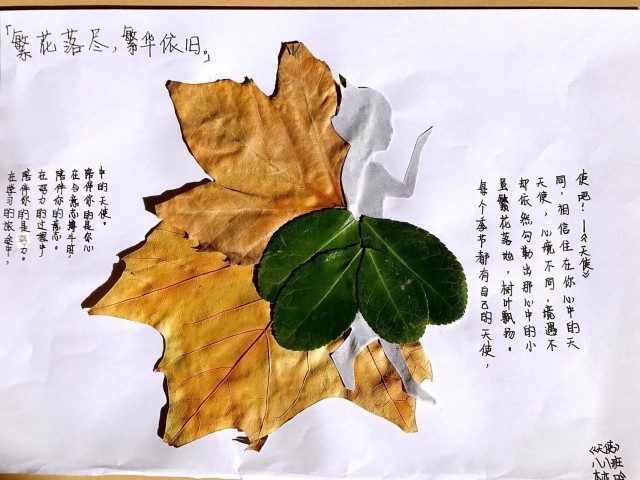 「繁花落尽，繁华依旧。」
在学习的旅途中，
陪伴你的是努力。
在努力的过程中
陪伴你的意志。
在与意志搏斗时，
陪伴你的是你心
中的天使。
每个季节都有自己的天使，
虽繁花落地，树叶飘扬。
却依然勾勒出那心中的小
天使，心境不同，境遇不
同，相信住在你心中的天
使吧！—《天使》
《天使》
八八班